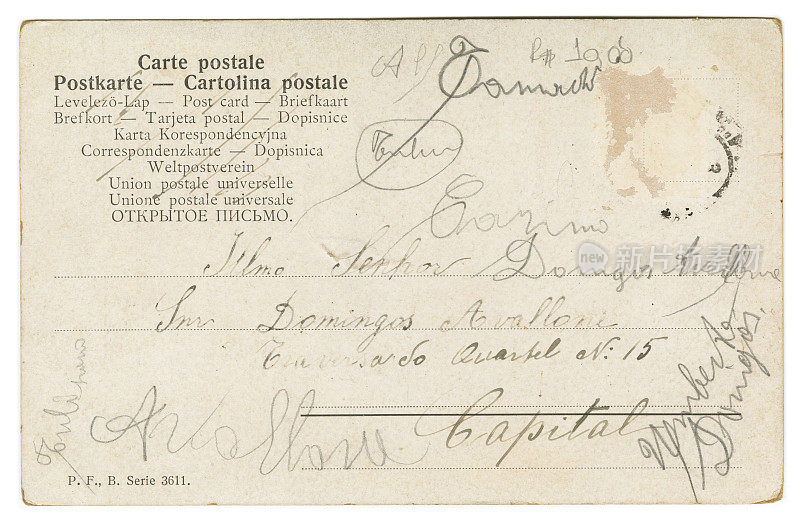 Carte postale
Postkarte — Cartolina postale
Levelező-Lap — Post card — Briefkaart
Brefkort — Tarjeta postal — Dopisnice
Karta Korespondencyjna
Correspondenzkarte — Dopisnica
Weltpostverein
Union postale universelle
Unione postale universale
ОТКРЫТОЕ ПИСЬМО.
Illmo Senhor Domingos Avallone
Snr Domingos Avallone
Quartel Nº 15
Capital
Avallone
Umberto
Domingos.
P. F., B. Serie 3611.
new iStock